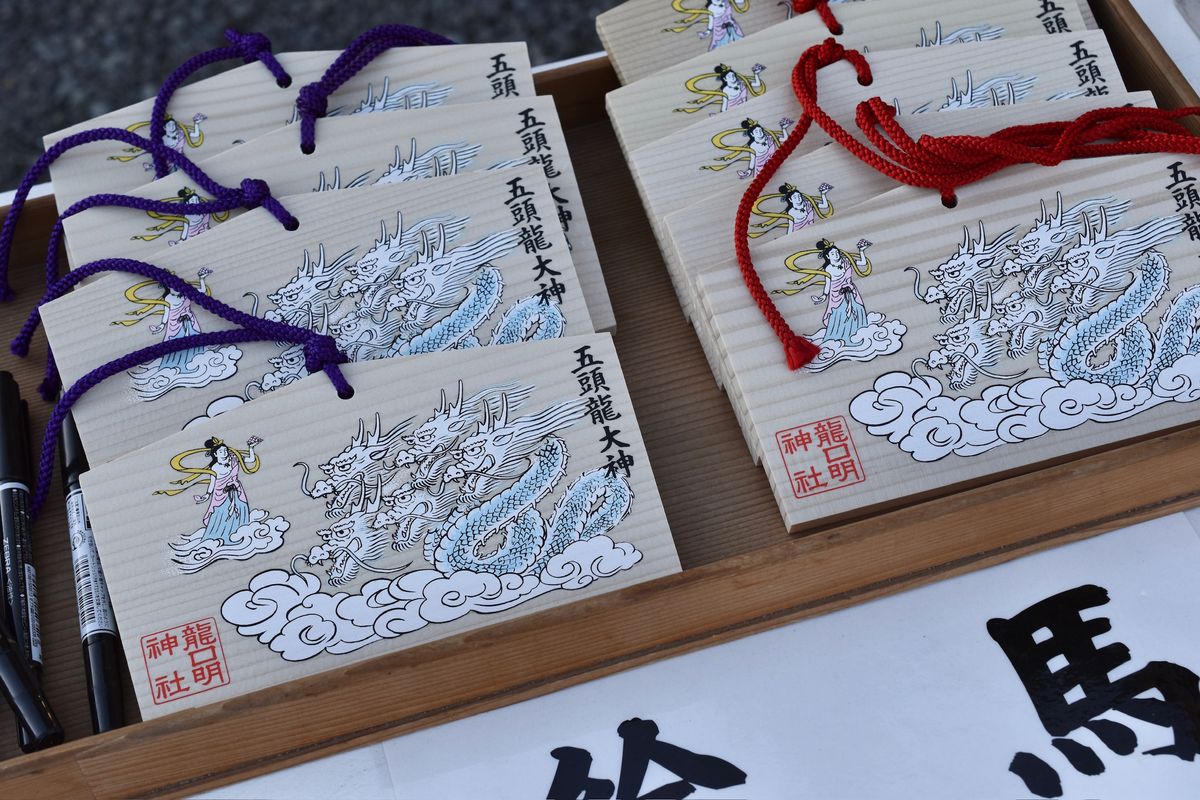 五頭
五頭龍大神
五頭龍大神
五頭龍大神
龍口明
神社
五頭
五頭
五頭
龍口明
神社
ZEBRA
絵馬